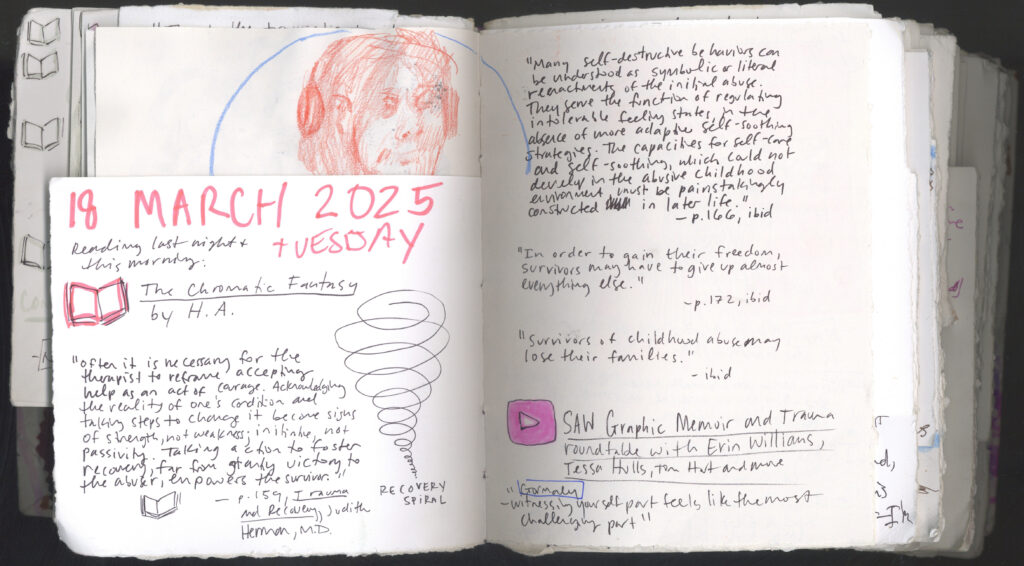 18 MARCH 2025
TUESDAY
Reading last night +
this morning:
The Chromatic Fantasy
by H.A.
"Often it is necessary for the
therapist to reframe accepting
help as an act of courage. Acknowledging
the reality of one's condition and
taking steps to change it become signs
of strength, not weakness; initiative, not
passivity. Taking action to foster
recovery, far from granting victory to
the abuser, empowers the survivor."
— p. 159, Trauma
and Recovery, Judith
Herman, M.D.
RECOVERY
SPIRAL
"Many self-destructive behaviors can
be understood as symbolic or literal
reenactments of the initial abuse.
They serve the function of regulating
intolerable feeling states, in the
absence of more adaptive self-soothing
strategies. The capacities for self-care
and self-soothing, which could not
develop in the abusive childhood
environment, must be painstakingly
constructed in later life."
— p. 166, ibid
"In order to gain their freedom,
survivors may have to give up almost
everything else."
— p. 172, ibid
"Survivors of childhood abuse may
lose their families."
- ibid
SAW Graphic Memoir and Trauma
roundtable with Erin Williams,
Tessa Hulls, Tom Hart and more
"
- witnessing yourself part feels like the most
challenging part"